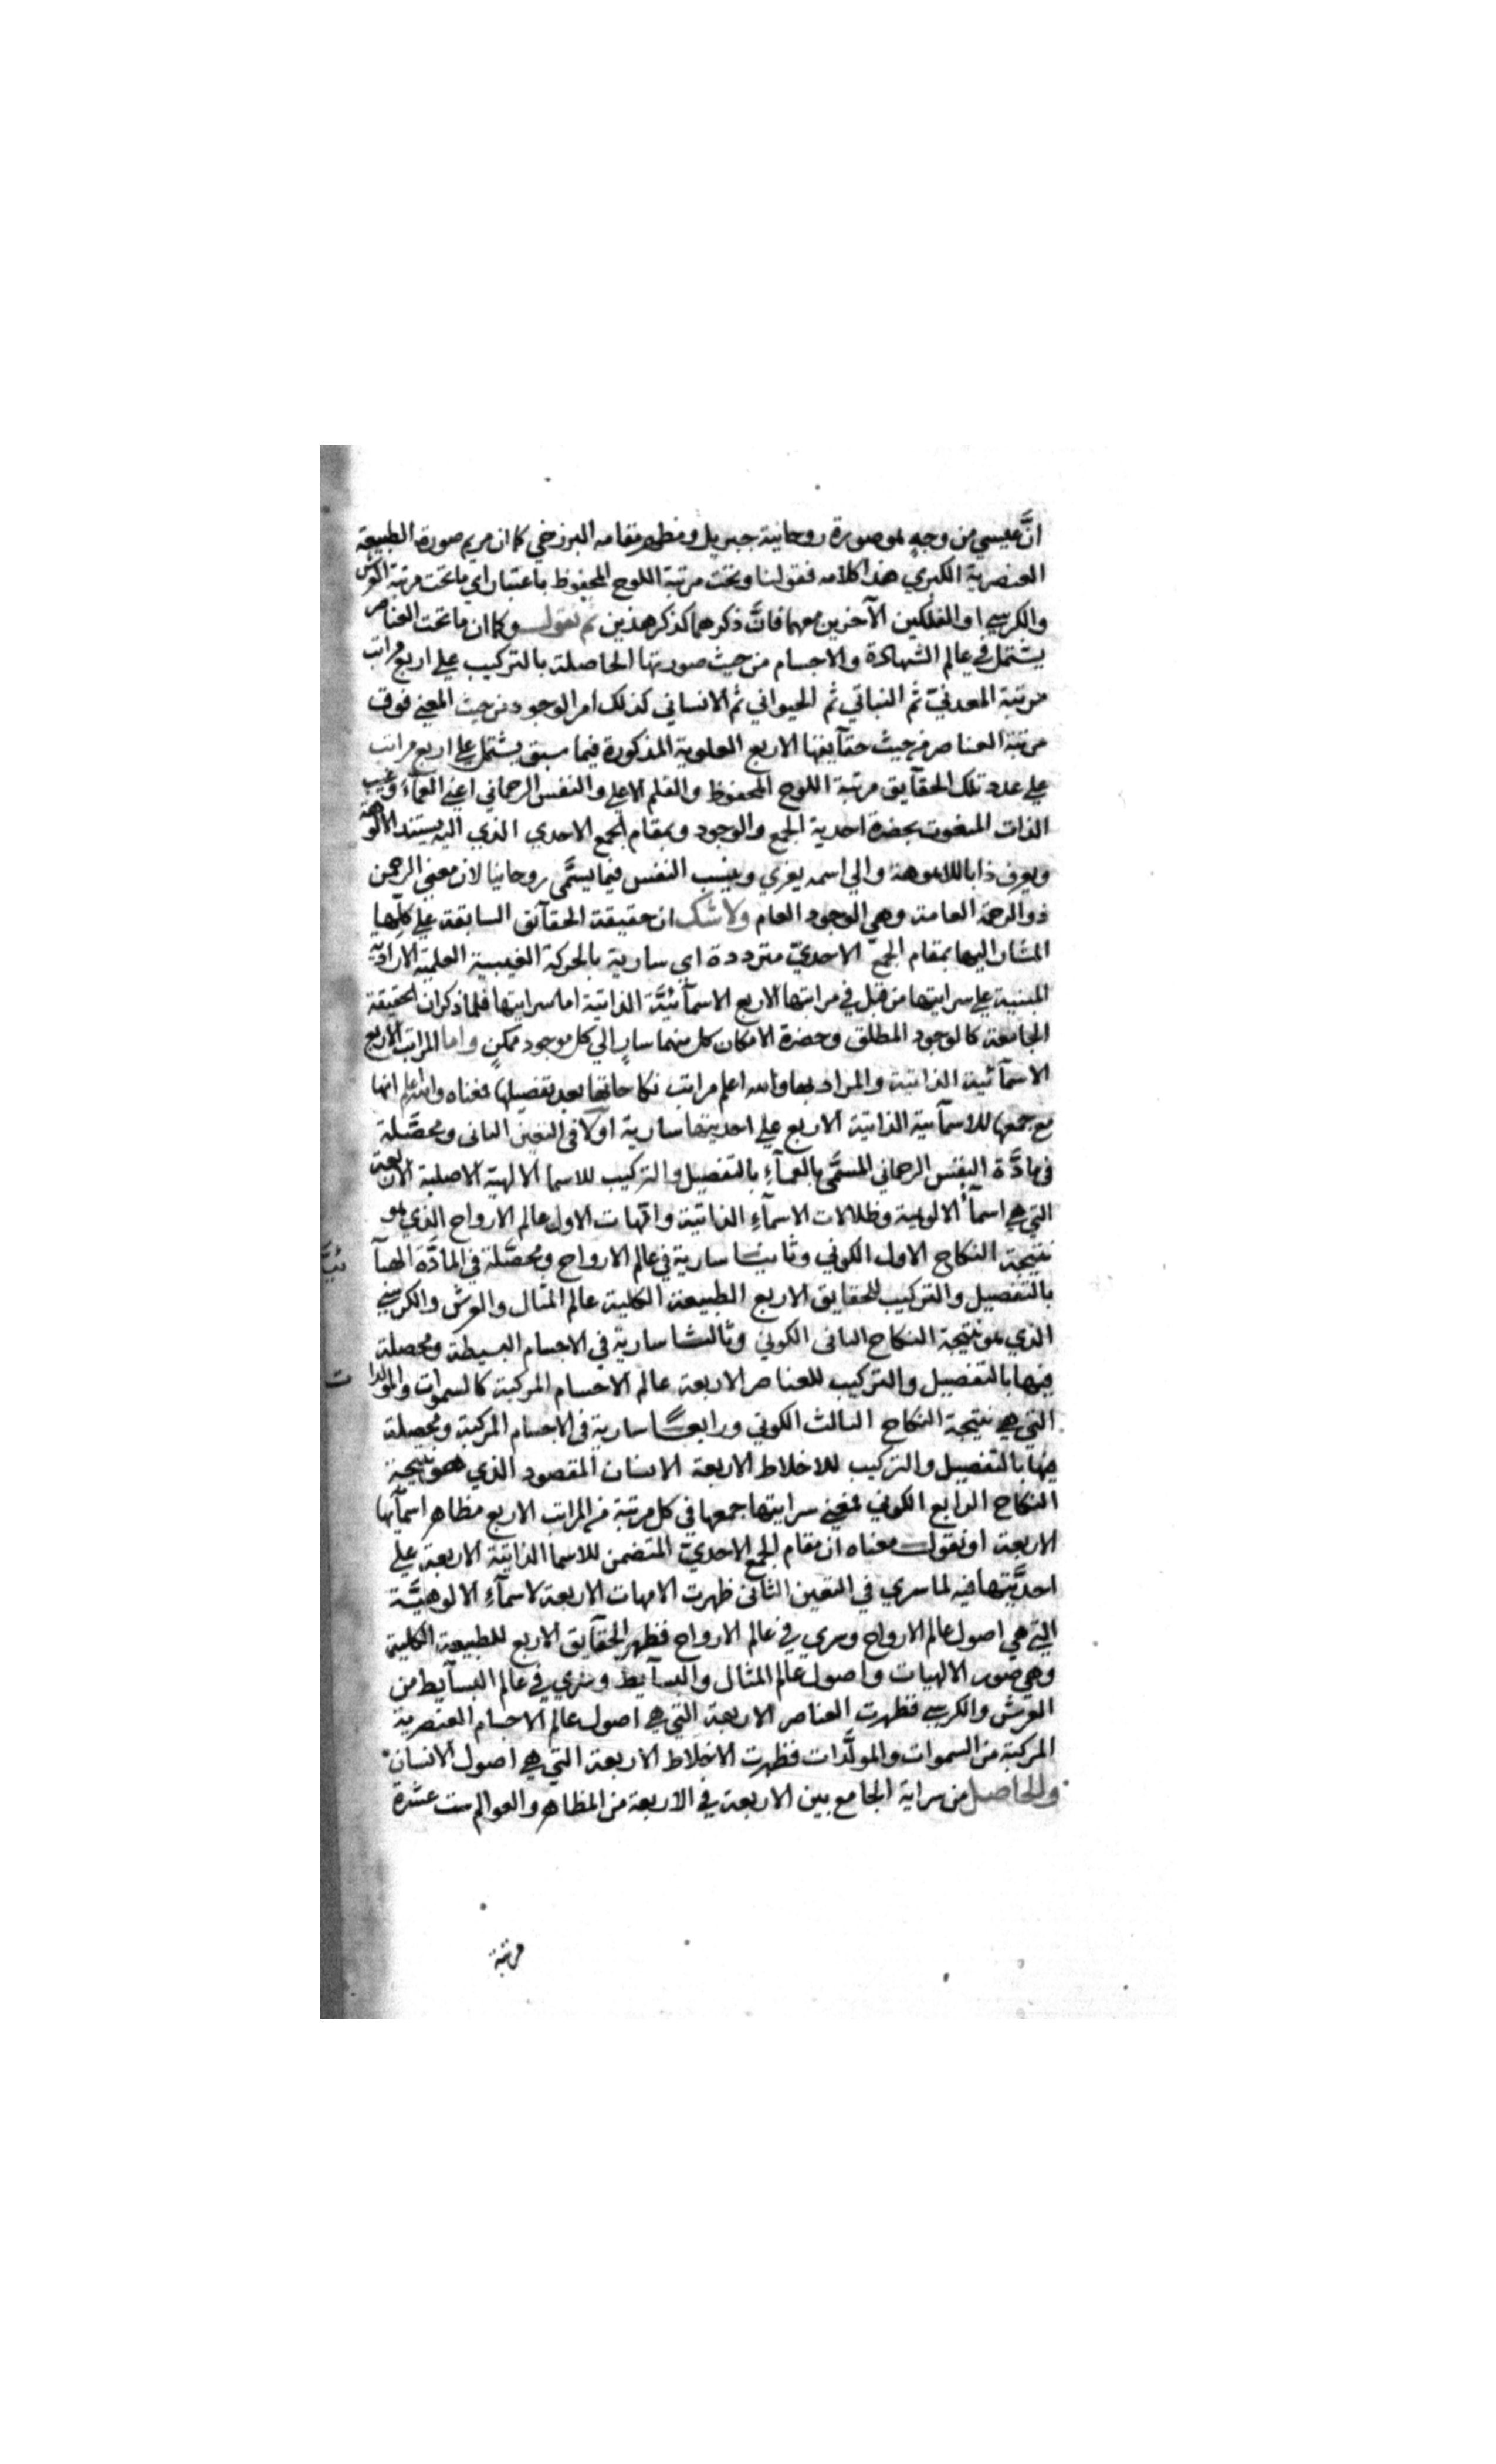 انَّ عيسي من وجهٍ هو صورة روحانية جبريل ومظهر مقامه البرزخي كما ان مريم صورة الطبيعة
العنصرية الكبري هذا كلامه فقولنا وتحت مرتبة اللوح المحفوظ باعتبار اي ما تحت مرتبة العرش
والكرسي او الفلكين الآخرين معهما فانَّ ذكرهما كذكر هذين ثم نقول وكما ان ما تحت العناصر
يشتمل في عالم الشهادة والاجسام من حيث صورتها الحاصلة بالتركيب علي اربع مراتب
مرتبة المعدني ثم النباتي ثم الحيواني ثم الانساني كذلك امر الوجود من حيث المعني فوق
مرتبة العناصر من حيث حقآيقها الاربع العلوية المذكورة فيما سبق يشتمل علي اربع مراتب
علي عدد تلك الحقآيق مرتبة اللوح المحفوظ والقلم الاعلي والنفس الرحماني اعني العمآء وغيب
الذات المنعوت بحضرة احدية الجمع والوجود وبمقام الجمع الاحدي الذي اليه يستند الالوهة
ويعرف ذا باللاهوهة والي اسمه يعزي وينسب النفس فيما يسمَّي روحانيا لان معني الرحمن
ذو الرحمة العامة وهي الوجود العام ولا شك ان حقيقة الحقآئق السابقة علي كلها
المشار اليها بمقام الجمع الاحديّ مترددة اي سارية بالحركة الغيبية العلمية الارادية
المبنية علي سرايتها من قبل في مراتبها الاربع الاسمآئيَّة الذاتية اما سرايتها فلما ذكر ان الحقيقة
الجامعة كالوجود المطلق وحضرة الامكان كل منهما سارٍ الي كل موجود ممكنٍ واما المراتب الاربع
الاسمآئية الذاتية والمراد بها والله اعلم مراتب نكاحاتها بعد تفصيلها فمعناه والله اعلم انها
مع جمعها للاسمآئية الذاتية الاربع علي احديتها سارية اولا في التعين الثاني ومحصَّلة
في مادَّة النفس الرحماني المسمَّي بالعمآءِ بالتفصيل والتركيب للاسما الالهية الاصلية الاربعة
التي هي اسمآءُ الالوهية وظلالات الاسمآءِ الذاتية وامّهات الاول عالم الارواح الذي هو
نتيجة النكاح الاول الكوني وثانيا سارية في عالم الارواح ومحصَّلة في المادَّة الهبآئيَّة
بالتفصيل والتركيب للحقايق الاربع الطبيعة الكلية عالم المثال والعرش والكرسي
الذي هو نتيجة النكاح الثاني الكوني وثالثا سارية في الاجسام البسيطة ومحصلة
فيها بالتفصيل والتركيب للعناصر الاربعة عالم الاجسام المركبة كالسموات والمولدات
التي هي نتيجة النكاح الثالث الكوني ورابعاً سارية في الاجسام المركبة ومحصلة
فيها بالتفصيل والتركيب للاخلاط الاربعة الانسان المقصود الذي هو نتيجة
النكاح الرابع الكوني فمعني سرايتها جمعها في كل مرتبة من المراتب الاربع مظاهر اسمآئها
الاربعة او نقول معناه ان مقام الجمع الاحديّ المتضمن للاسما الذاتية الاربعة علي
احديَّتها فيه لما سري في التعين الثاني ظهرت الامهات الاربعة لاسمآءِ الالوهيَّة
التي هي اصول عالم الارواح وسري في عالم الارواح فظهر الحقآيق الاربع للطبيعة الكلية
وهي صور الالهيات واصول عالم المثال والبسآيط وسري في عالم البسآيط من
العرش والكرسي فظهرت العناصر الاربعة التي هي اصول عالم الاجسام العنصرية
المركبة من السموات والمولَّدات فظهرت الاخلاط الاربعة التي هي اصول الانسان
والحاصل من سراية الجامع بين الاربعة في الاربعة من المظاهر والعوالم ست عشرة
مرتبة